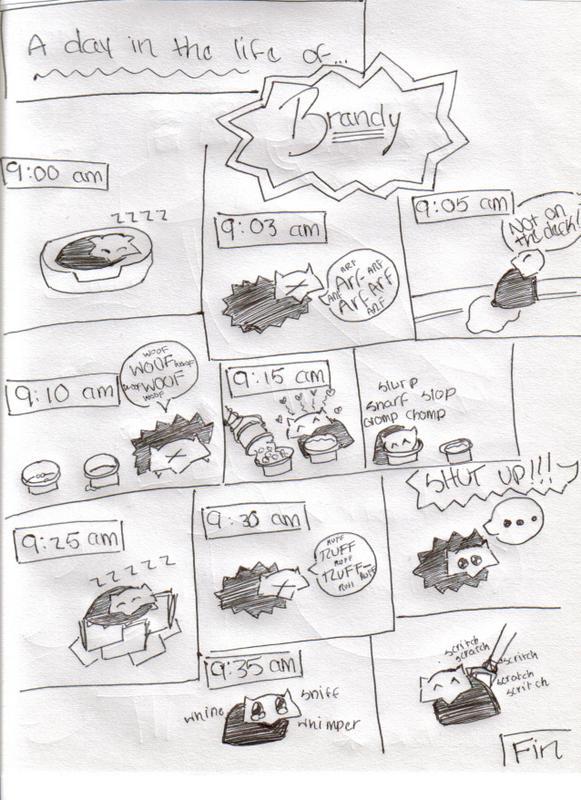 A day in the life of...
Brandy
9:00 am
zzzz
9:03 am
ARF
Arf ARF
Arf ARF
ARF
ARF
9:05 am
Not on
the deck!
9:10 am
WOOF
WOOF WOOF
WOOF WOOF
WOOF
9:15 am
slurp
snarf slop
chomp chomp
9:25 am
zzzzz
9:30 am
RUFF
RUFF
RUFF
RUFF RUFF
RUFF
SHUT UP!!!
...
9:35 am
whine
sniff
whimper
scritch
scratch
scritch
scratch
scritch
Fin